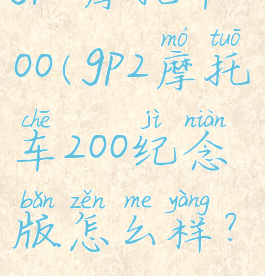 00(gp2摩托
车200纪念
版怎么样?
mó tuō
chē jì niàn
bǎn zěn me yàng